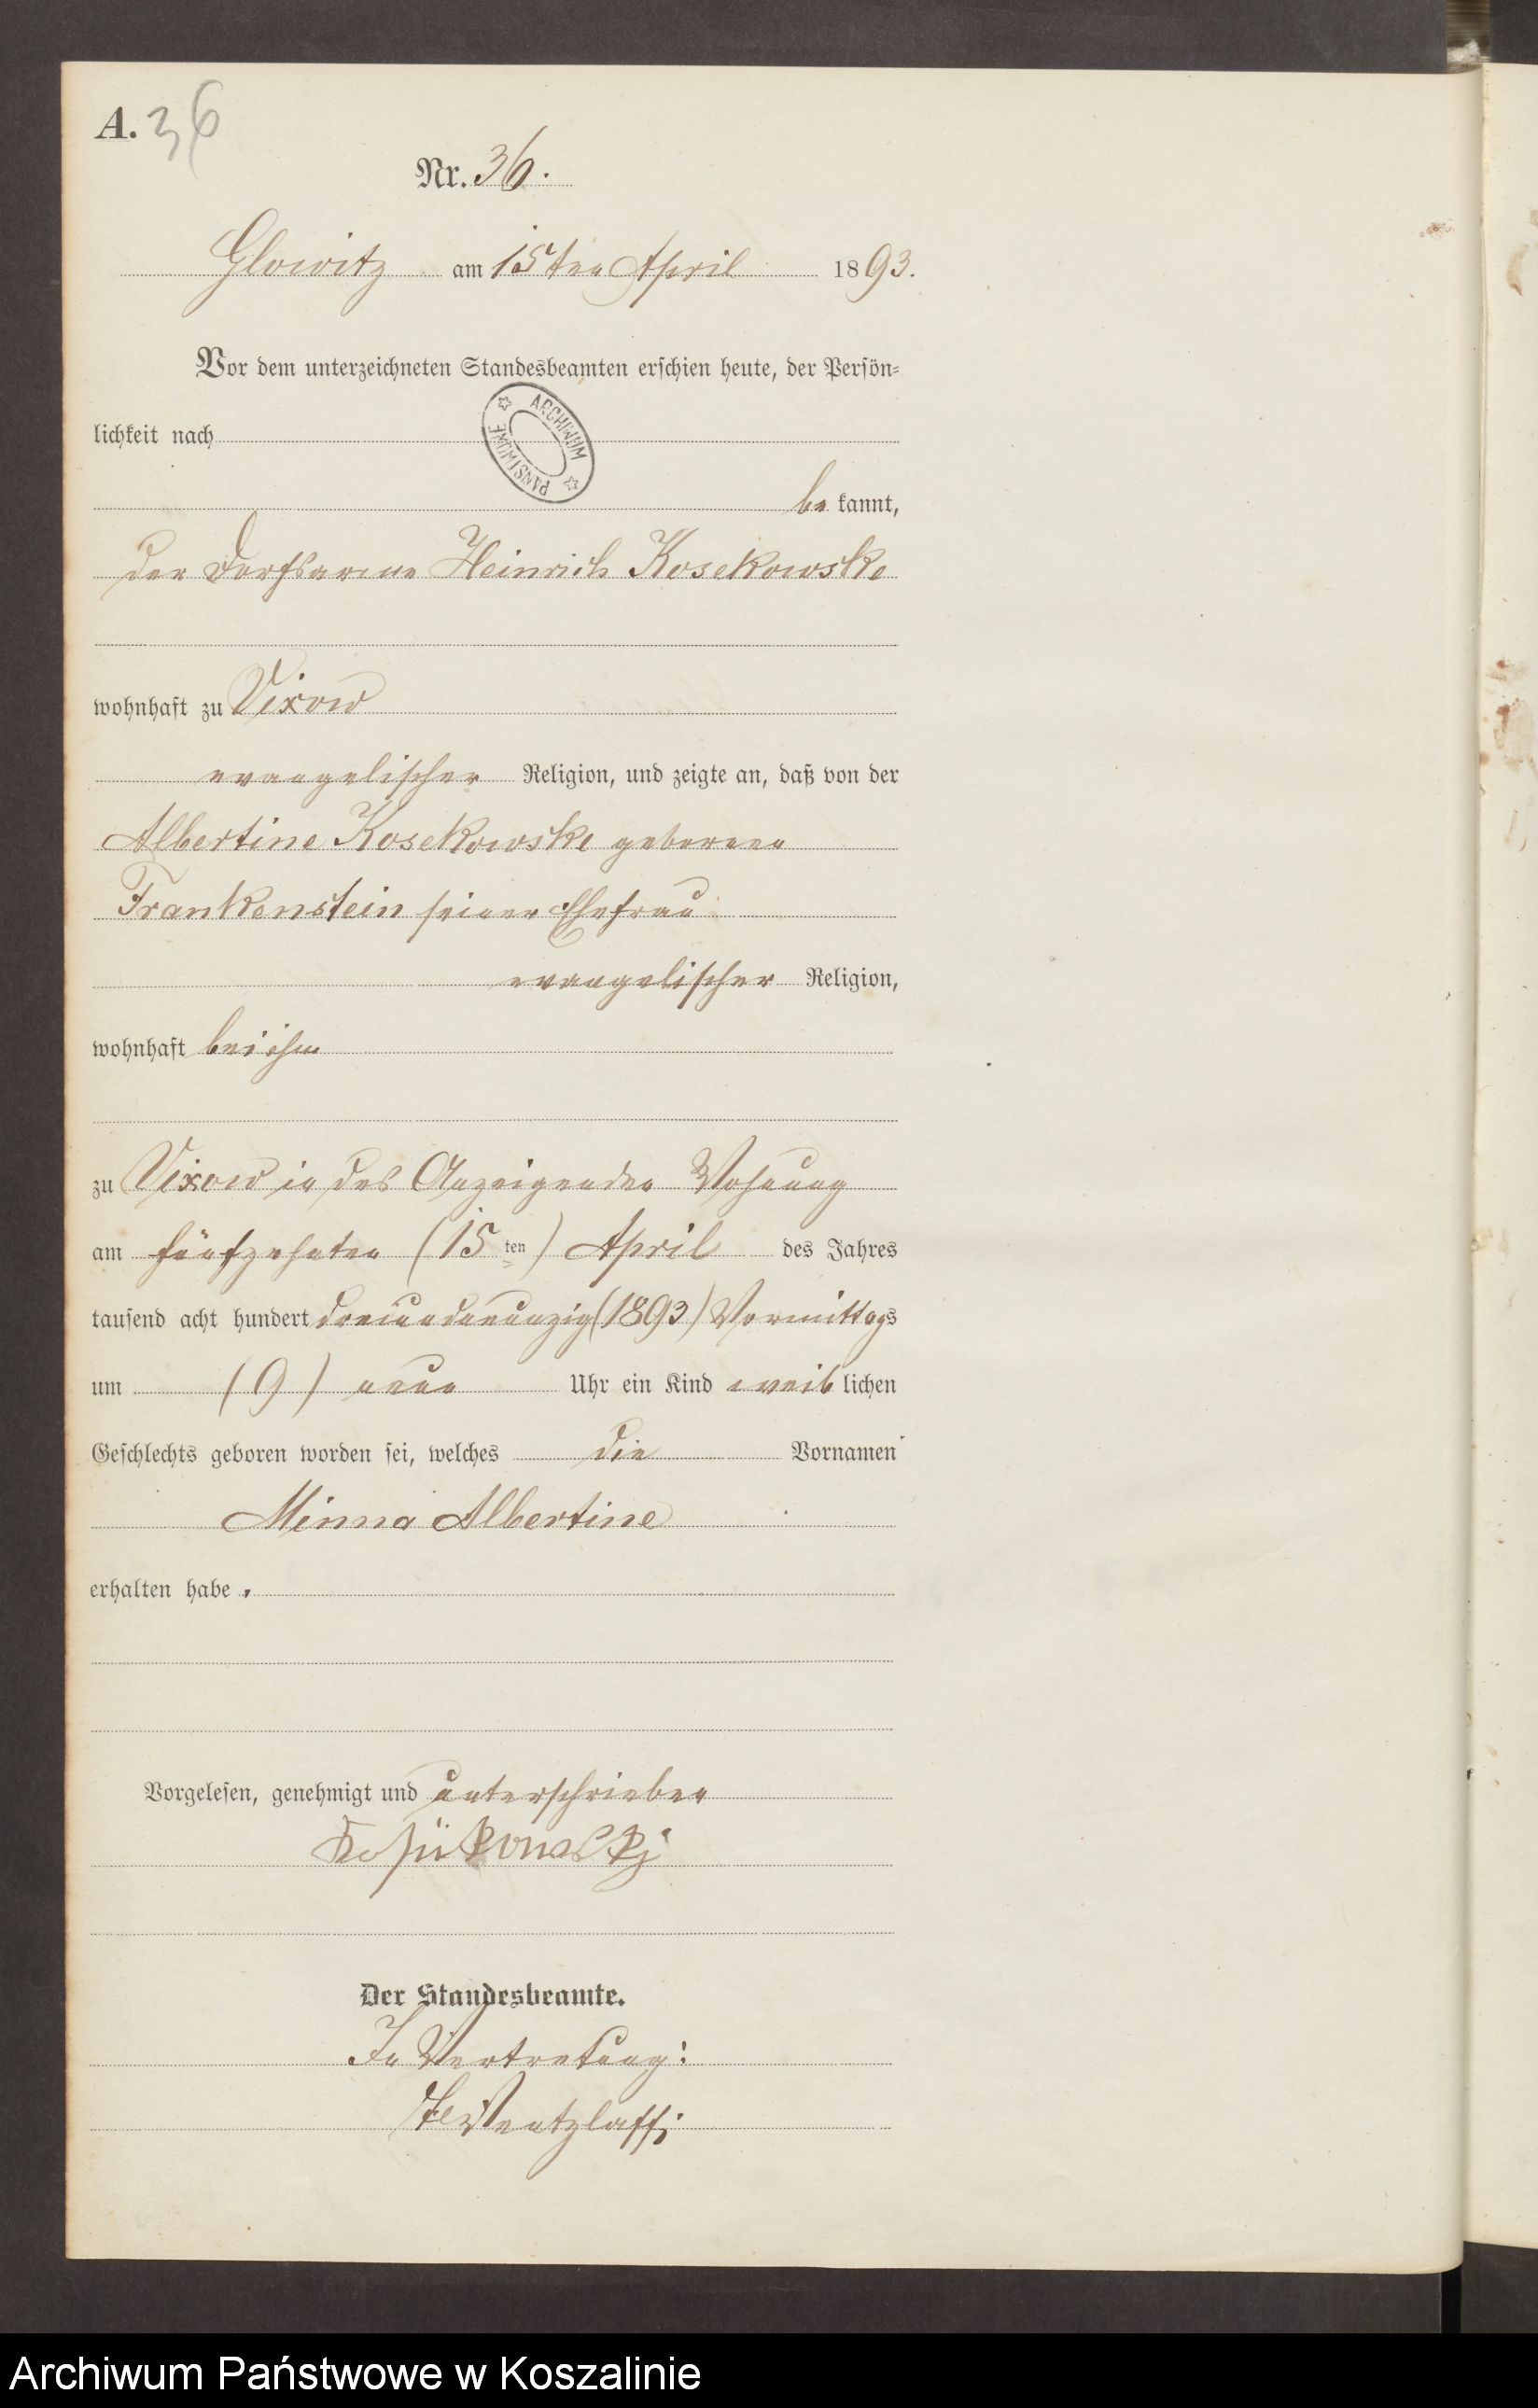 A. 36
Nr. 36.
Glowitz am 15ten April 1893.
Vor dem unterzeichneten Standesbeamten erschien heute, der Persön-
lichkeit nach
ARCHIWUM PAŃSTWOWE
be kannt,
der Dorfsarme Heinrich Kosekowske
wohnhaft zu Vixow
evangelischer Religion, und zeigte an, daß von der
Albertine Kosekowske geborenen
Frankenstein seiner Ehefrau
evangelischer Religion,
wohnhaft bei ihm
zu Vixow in des Anzeigenden Wohnung
am fünfzehnten (15ten) April des Jahres
tausend acht hundert dreiundneunzig (1893) Vormittags
um (9) neun Uhr ein Kind weib lichen
Geschlechts geboren worden sei, welches die Vornamen
Minna Albertine
erhalten habe.
Vorgelesen, genehmigt und unterschrieben
Der Standesbeamte.
In Vertretung:
Wentzlaff
Archiwum Państwowe w Koszalinie